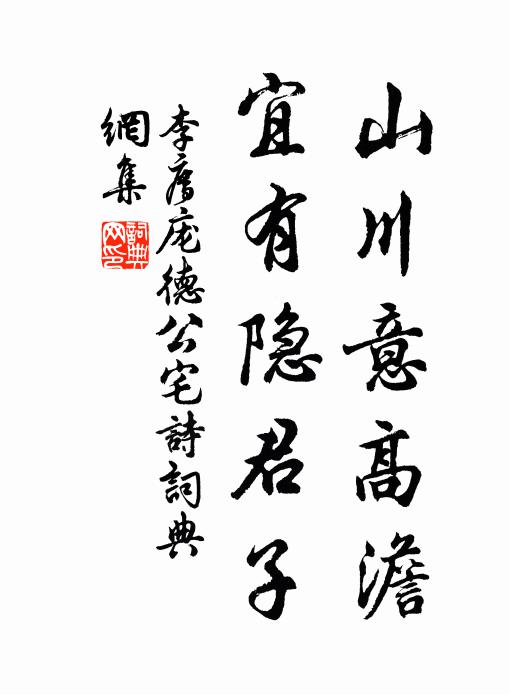 山川意高澹
宜有隐君子
李廌庞德公宅詩詞典
網集
詞典
网印